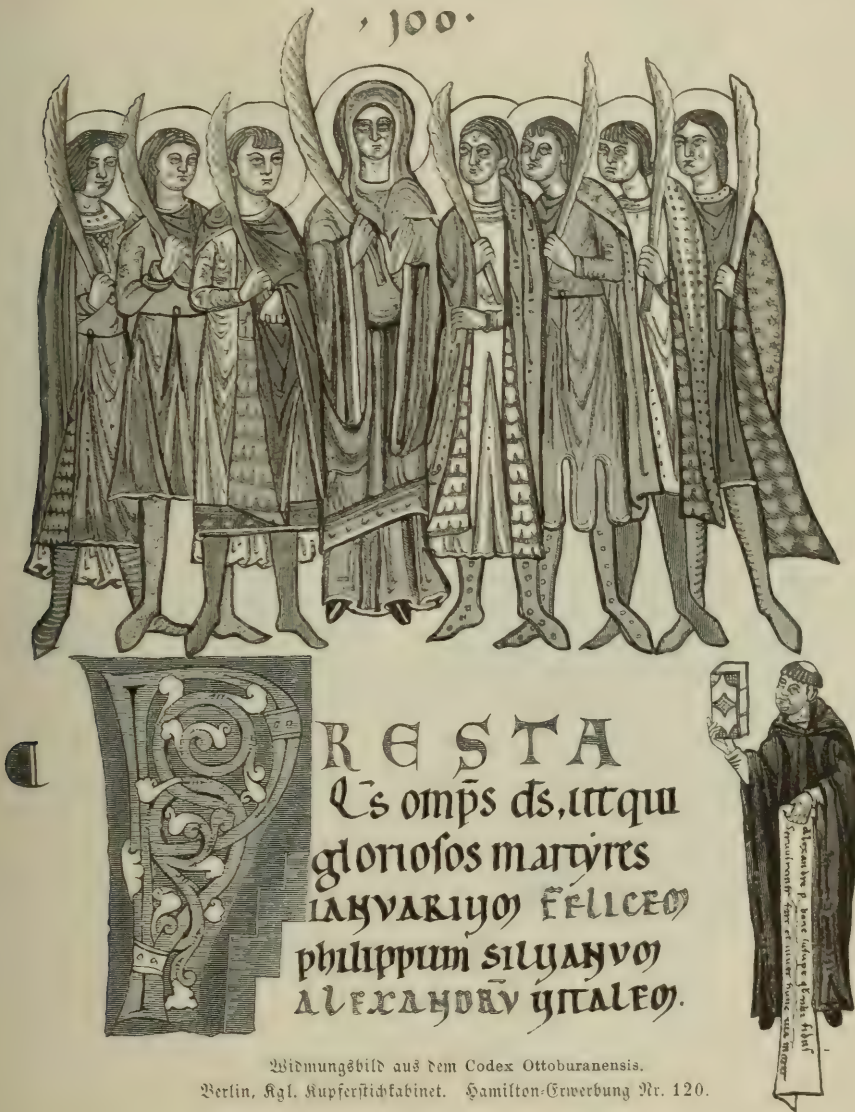 · 100 ·
PRESTA
Q̄s omp̄s d̄s, ut qui
gloriosos martyres
IANVARIUM FELICEM
philippum SILVANVM
ALEXANDRV̄ VITALEM.
alexandre p. bone
Widmungsbild aus dem Codex Ottoburanensis.
Berlin, Kgl. Kupferstichkabinet. Hamilton-Erwerbung Nr. 120.